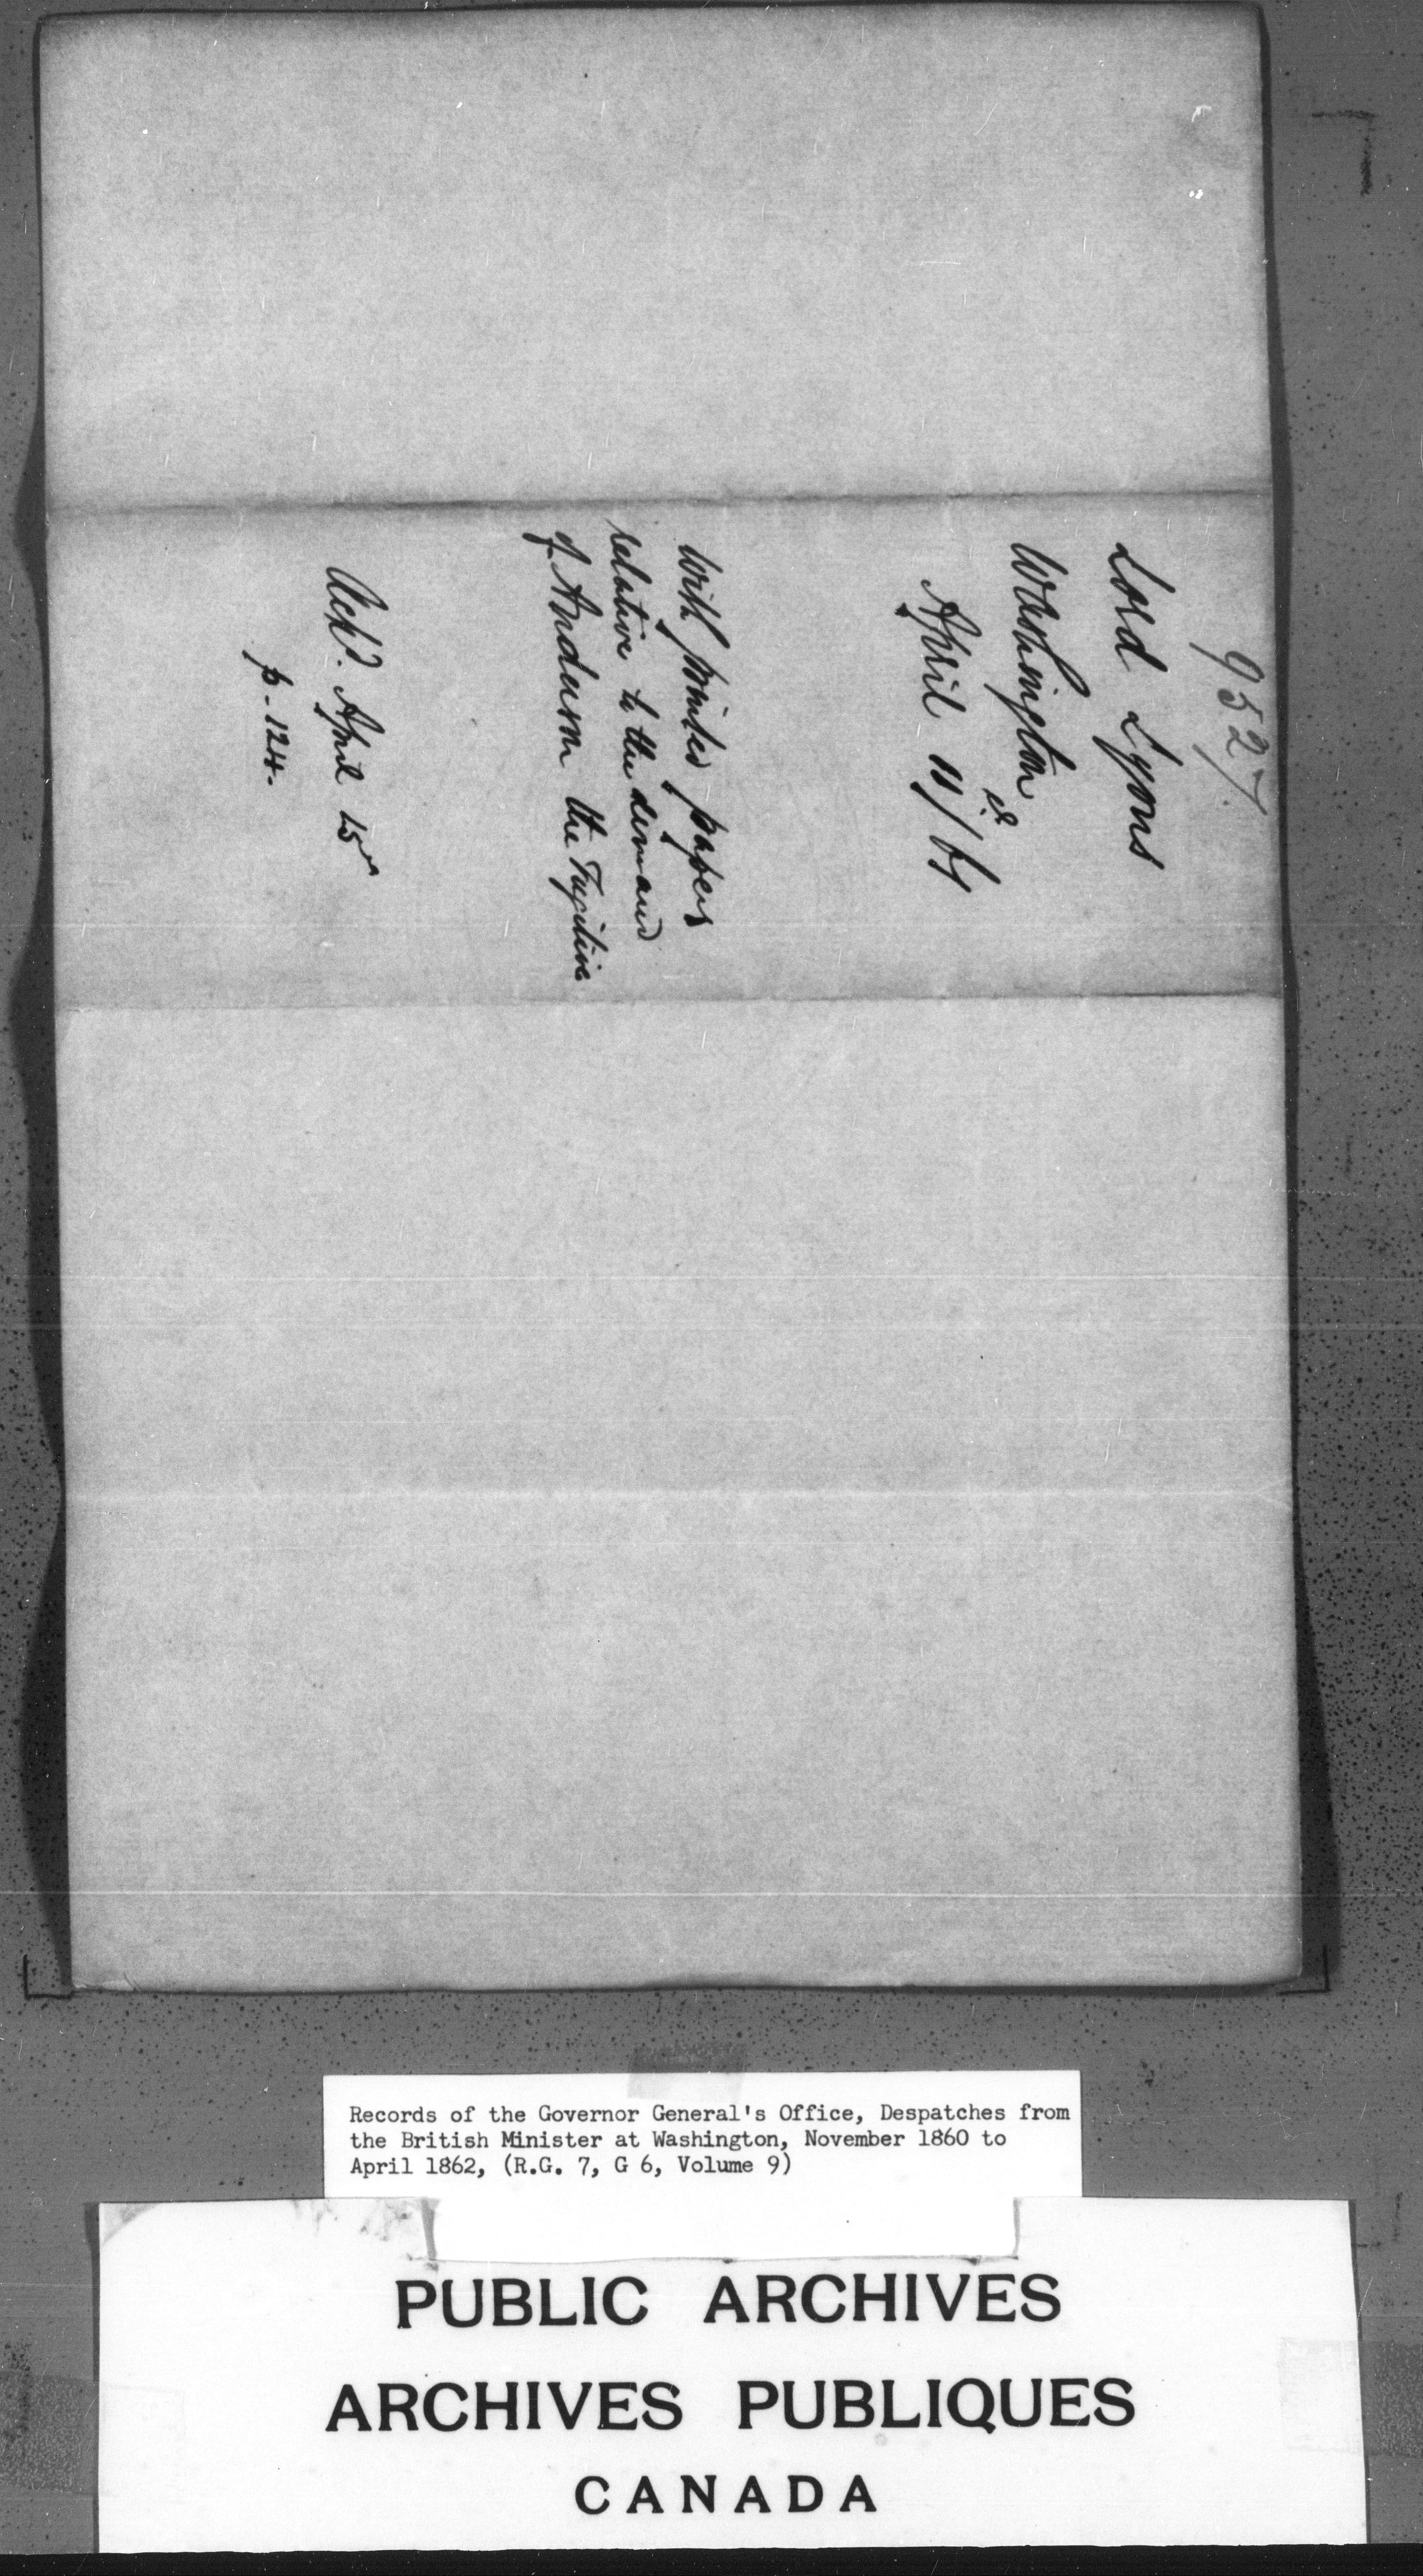 9527
Lord Lyons
Washington
April 11/61
With printed papers
relative to the demand
of Anderson the Fugitive
Ackd. April 15th
p. 124.
Records of the Governor General's Office, Despatches from
the British Minister at Washington, November 1860 to
April 1862, (R.G. 7, G 6, Volume 9)
PUBLIC ARCHIVES
ARCHIVES PUBLIQUES
CANADA